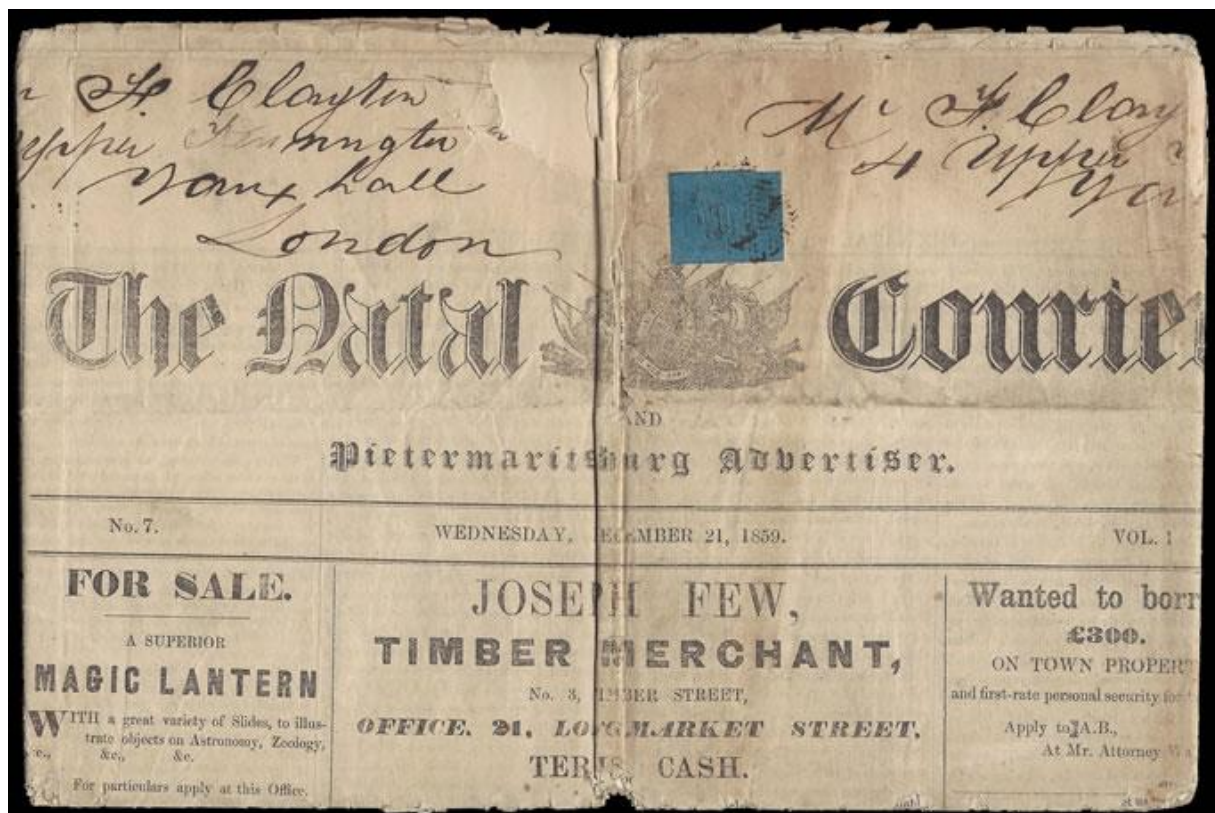 F Clayton
Upper Kennington
Vauxhall
London
Mr F. Clay
4 Upper
The Natal Courie
AND
Pietermaritzburg Advertiser.
No. 7.
WEDNESDAY, DECEMBER 21, 1859.
VOL. 1
FOR SALE.
A SUPERIOR
MAGIC LANTERN
WITH a great variety of Slides, to illus-
trate objects on Astronomy, Zoology,
&c., &c., &c.
For particulars apply at this Office.
JOSEPH FEW,
TIMBER MERCHANT,
No. 3, TIMBER STREET,
OFFICE, 21, LONGMARKET STREET.
TERMS CASH.
Wanted to borr
£300.
ON TOWN PROPERT
and first-rate personal security for
Apply to A.B.,
At Mr. Attorney